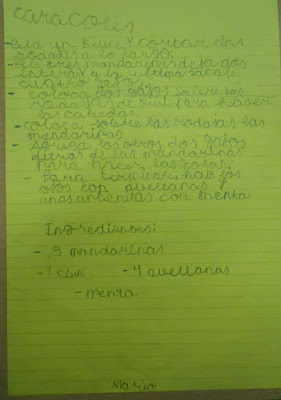 caracoles
- Pela un kiwi y cortar dos
rodajas a lo largo.
tres mandarinas deja dos
enteras y a la ultima sacale
cuatro gajos
- coloca dos gajos sobre las
rodajas de kiwi para hacer
las cabezas.
- coloca sobre las rodajas las
mandarinas
- Agrega los otros dos gajos
de las mandarinas
para hacer las colas.
- Para terminar haz los
ojos con avellanas y
unas antenitas con menta
Ingredientes:
- 3 mandarinas
- 1 kiwi - 4 avellanas
- menta
María